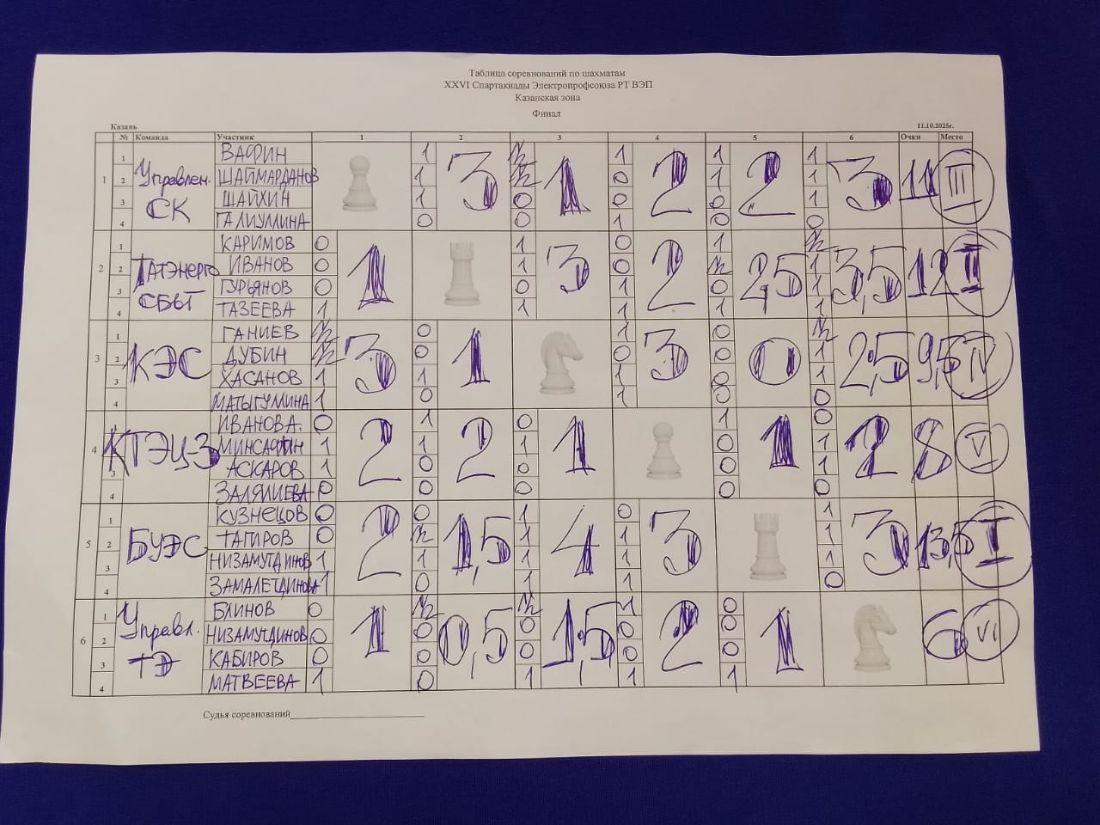 Таблица соревнований по шахматам
XXVI Спартакиады Электропрофсоюза РТ ВЭП
Казанская зона
Финал
Казань 11.10.2025г.
№ Команда Участник 1 2 3 4 5 6 Очки Место
1 Управлен. СК 3 1 2 2 3 11 III
1 ВАФИН 1 ½ 1 1 1
2 ШАЙМАРДАНОВ 1 ½ 0 1 1
3 ШАЙХИН 1 0 0 0 1
4 ГАЛИУЛЛИНА 0 0 1 0 0
2 ТАТЭНЕРГО СБЫТ 1 3 2 2,5 3,5 12 II
1 КАРИМОВ 0 1 0 1 ½
2 ИВАНОВ 0 1 0 ½ 1
3 ГУРЬЯНОВ 0 0 1 0 1
4 ТАЗЕЕВА 1 1 1 1 1
3 КЭС 3 1 3 0 2,5 9,5 IV
1 ГАНИЕВ ½ 0 1 0 ½
2 ДУБИН ½ 0 0 0 1
3 ХАСАНОВ 1 1 1 0 1
4 МАТЫГУМИНА 1 0 1 0 0
4 КТЭЦ-3 2 2 1 1 2 8 V
1 ИВАНОВА. 0 1 0 1 0
2 МИНСАФИН 1 1 1 0 1
3 АСКАРОВ 1 0 0 0 1
4 ЗАЛЯЛИЕВА 0 0 0 0 0
5 БУЭС 2 1,5 4 3 3 13,5 I
1 КУЗНЕЦОВ 0 0 1 0 1
2 ТАГИРОВ 0 ½ 1 1 1
3 НИЗАМУТДИНОВ 1 1 1 1 1
4 ЗАМАЛЕТДИНОВА 1 0 1 1 0
6 Управл. ТЭ 1 0,5 1,5 2 1 6 VI
1 БЛИНОВ 0 ½ ½ 1 0
2 НИЗАМУТДИНОВ 0 0 0 0 0
3 КАБИРОВ 0 0 0 0 0
4 МАТВЕЕВА 1 0 1 1 1
Судья соревнований